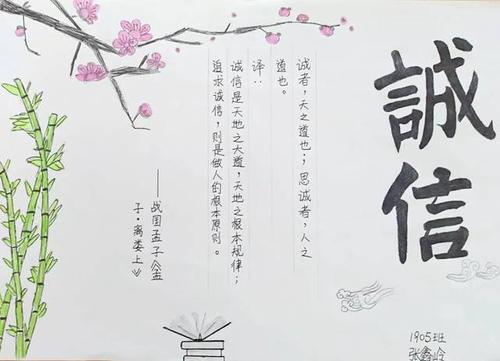 誠信
诚者，天之道也；思诚者，人之
道也。
译：
诚信是天地之大道，天地之根本规律；
追求诚信，则是做人的根本原则。
——战国孟子《孟
子·离娄上》
1905班
张鑫岭